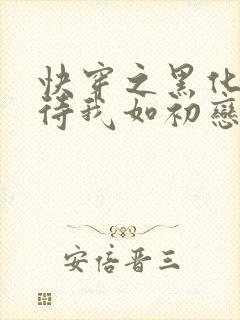 快穿之黑化
待我如初戀
安倍晋三